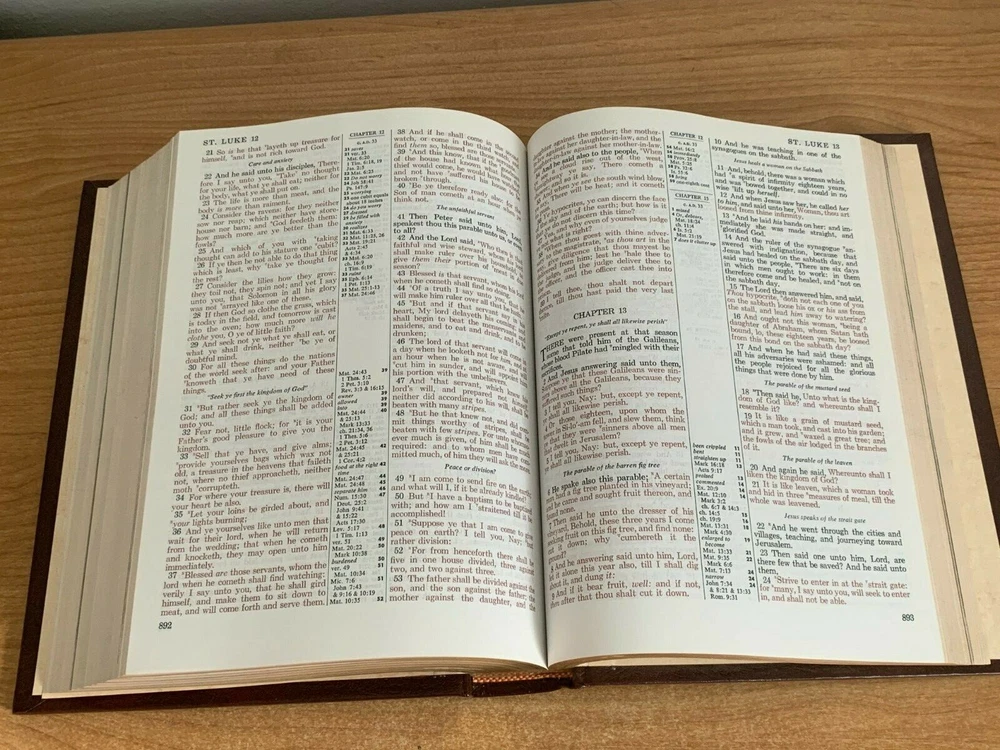 ST. LUKE 12
21 So is he that layeth up treasure for
himself, and is not rich toward God.
Care and anxiety
22 And he said unto his disciples, There-
fore I say unto you, Take no thought
for your life, what ye shall eat; neither for
the body, what ye shall put on.
23 The life is more than meat, and the
body is more than raiment.
24 Consider the ravens: for they neither
sow nor reap; which neither have store-
house nor barn; and God feedeth them:
how much more are ye better than the
fowls?
25 And which of you with taking
thought can add to his stature one cubit?
26 If ye then be not able to do that thing
which is least, why take ye thought for
the rest?
27 Consider the lilies how they grow:
they toil not, they spin not; and yet I say
unto you, that Solomon in all his glory
was not arrayed like one of these.
28 If then God so clothe the grass, which
is today in the field, and tomorrow is cast
into the oven; how much more will he
clothe you, O ye of little faith?
29 And seek not ye what ye shall eat, or
what ye shall drink, neither be ye of
doubtful mind.
30 For all these things do the nations
of the world seek after: and your Father
knoweth that ye have need of these
things.
"Seek ye first the kingdom of God"
31 But rather seek ye the kingdom of
God; and all these things shall be added
unto you.
32 Fear not, little flock; for it is your
Father's good pleasure to give you the
kingdom.
33 Sell that ye have, and give alms;
provide yourselves bags which wax not
old, a treasure in the heavens that faileth
not, where no thief approacheth, neither
moth corrupteth.
34 For where your treasure is, there will
your heart be also.
35 Let your loins be girded about, and
your lights burning;
36 And ye yourselves like unto men that
wait for their lord, when he will return
from the wedding; that when he cometh
and knocketh, they may open unto him
immediately.
37 Blessed are those servants, whom the
lord when he cometh shall find watching:
verily I say unto you, that he shall gird
himself, and make them to sit down to
meat, and will come forth and serve them.
CHAPTER 12
Mat. 24:43 39
1 Thes. 5:2
2 Pet. 3:10
Rev. 3:3 & 16:15
owner 39
allowed 39
into 39
Mat. 24:44 40
& 25:13
Mark 13:33
ch. 21:34, 36
1 Thes. 5:6
2 Pet. 3:12
Mat. 24:45 42
& 25:21
1 Cor. 4:2
food at the right 42
time
Mat. 24:47 44
Mat. 24:48 45
separate him 46
Num. 15:30 47
Deut. 25:2
John 9:41
& 15:22
Acts 17:30
Lev. 5:17 48
1 Tim. 1:13
ver. 51 49
Mat. 20:22 50
Mark 10:38
burdened 50
ver. 49 51
Mat. 10:34
Mic. 7:6
John 7:43
& 9:16 & 10:19
Mat. 10:35 52
38 And if he shall come in the
watch, or come in the
find them so, blessed are those
39 And this know, that if the
of the house had known what hour
thief would come, he would have
and not have suffered his house
broken through.
40 Be ye therefore ready also: for
Son of man cometh at an hour when
think not.
The unfaithful servant
41 Then Peter said unto him, Lord,
speakest thou this parable unto us, or even
to all?
42 And the Lord said, Who then is that
faithful and wise steward, whom his lord
shall make ruler over his household, to
give them their portion of meat in due
season?
43 Blessed is that servant, whom his lord
when he cometh shall find so doing.
44 Of a truth I say unto you, that he
will make him ruler over all that he hath.
45 But and if that servant say in his
heart, My lord delayeth his coming; and
shall begin to beat the menservants and
maidens, and to eat and drink, and to be
drunken;
46 The lord of that servant will come in
a day when he looketh not for him, and at
an hour when he is not aware, and will
cut him in sunder, and will appoint him
his portion with the unbelievers.
47 And that servant, which knew his
lord's will, and prepared not himself,
neither did according to his will, shall be
beaten with many stripes.
48 But he that knew not, and did commit
things worthy of stripes, shall be
beaten with few stripes. For unto whomsoever
much is given, of him shall be much
required: and to whom men have com-
mitted much, of him they will ask the more.
Peace or division?
49 I am come to send fire on the earth;
and what will I, if it be already kindled?
50 But I have a baptism to be baptized
with; and how am I straitened till it be
accomplished!
51 Suppose ye that I am come to give
peace on earth? I tell you, Nay; but
rather division:
52 For from henceforth there shall be
five in one house divided, three against
two, and two against three.
53 The father shall be divided against the
son, and the son against the father; the
mother against the daughter, and the
892
ST. LUKE 13
against the mother; the mother-
in-law against her daughter-in-law, and the
against her mother-in-law.
And he said also to the people, When
rise out of the west,
ye say, There cometh a
so it is.
when ye see the south wind blow,
There will be heat; and it cometh
Ye hypocrites, ye can discern the face
of the sky and of the earth; but how is it
that ye do not discern this time?
Yea, and why even of yourselves judge
ye not what is right?
When thou goest with thine adver-
sary to the magistrate, as thou art in the
way, give diligence that thou mayest be
delivered from him; lest he hale thee to
the judge, and the judge deliver thee to
the officer, and the officer cast thee into
I tell thee, thou shalt not depart
thence, till thou hast paid the very last
CHAPTER 13
"Except ye repent, ye shall all likewise perish"
THERE were present at that season
some that told him of the Galileans,
whose blood Pilate had mingled with their
sacrifices.
2 And Jesus answering said unto them,
Suppose ye that these Galileans were sin-
ners above all the Galileans, because they
suffered such things?
3 I tell you, Nay: but, except ye repent,
ye shall all likewise perish.
4 Or those eighteen, upon whom the
tower in Si-lo'am fell, and slew them, think
ye that they were sinners above all men
that dwelt in Jerusalem?
5 I tell you, Nay: but, except ye repent,
ye shall all likewise perish.
The parable of the barren fig tree
6 He spake also this parable; A certain
man had a fig tree planted in his vineyard;
and he came and sought fruit thereon, and
found none.
7 Then said he unto the dresser of his
vineyard, Behold, these three years I come
seeking fruit on this fig tree, and find none:
cut it down; why cumbereth it the
ground?
8 And he answering said unto him, Lord,
let it alone this year also, till I shall dig
about it, and dung it:
9 And if it bear fruit, well: and if not,
then after that thou shalt cut it down.
CHAPTER 12
CHAPTER 13
been crippled 11
bent 11
straighten up 11
Mark 16:18 13
Acts 9:17
praised 13
commanded 14
Ex. 20:9 14
Mat. 12:10 14
Mark 3:2
ch. 6:7 & 14:3
ch. 14:5 15
ch. 19:9 16
Mat. 13:31 18
Mark 4:30
enlarged to 19
become
Mat. 13:33 21
Mat. 9:35 22
Mark 6:6
Mat. 7:13 24
narrow 24
John 7:34 24
& 8:21 & 13:33
Rom. 9:31
10 And he was teaching in one of the
synagogues on the sabbath.
Jesus heals a woman on the Sabbath
11 And, behold, there was a woman which
had a spirit of infirmity eighteen years,
and was bowed together, and could in no
wise lift up herself.
12 And when Jesus saw her, he called her
to him, and said unto her, Woman, thou art
loosed from thine infirmity.
13 And he laid his hands on her: and im-
mediately she was made straight, and
glorified God.
14 And the ruler of the synagogue an-
swered with indignation, because that
Jesus had healed on the sabbath day, and
said unto the people, There are six days
in which men ought to work: in them
therefore come and be healed, and not on
the sabbath day.
15 The Lord then answered him, and said,
Thou hypocrite, doth not each one of you
on the sabbath loose his ox or his ass from
the stall, and lead him away to watering?
16 And ought not this woman, being a
daughter of Abraham, whom Satan hath
bound, lo, these eighteen years, be loosed
from this bond on the sabbath day?
17 And when he had said these things,
all his adversaries were ashamed: and all
the people rejoiced for all the glorious
things that were done by him.
The parable of the mustard seed
18 Then said he, Unto what is the king-
dom of God like? and whereunto shall I
resemble it?
19 It is like a grain of mustard seed,
which a man took, and cast into his garden;
and it grew, and waxed a great tree; and
the fowls of the air lodged in the branches
of it.
The parable of the leaven
20 And again he said, Whereunto shall I
liken the kingdom of God?
21 It is like leaven, which a woman took
and hid in three measures of meal, till the
whole was leavened.
Jesus speaks of the strait gate
22 And he went through the cities and
villages, teaching, and journeying toward
Jerusalem.
23 Then said one unto him, Lord, are
there few that be saved? And he said unto
them,
24 Strive to enter in at the strait gate:
for many, I say unto you, will seek to enter
in, and shall not be able.
893